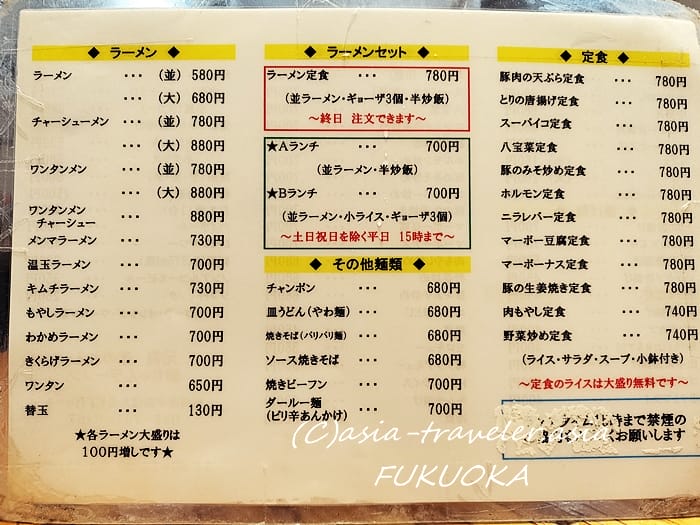 ◆ ラーメン ◆
ラーメン ・・・ (並) 580円
・・・ (大) 680円
チャーシューメン ・・・ (並) 780円
・・・ (大) 880円
ワンタンメン ・・・ (並) 780円
・・・ (大) 880円
ワンタンメン
チャーシュー ・・・ 880円
メンマラーメン ・・・ 730円
温玉ラーメン ・・・ 700円
キムチラーメン ・・・ 730円
もやしラーメン ・・・ 700円
わかめラーメン ・・・ 700円
きくらげラーメン ・・・ 700円
ワンタン ・・・ 650円
替玉 ・・・ 130円
★各ラーメン大盛りは
100円増しです★
◆ ラーメンセット ◆
ラーメン定食 ・・・ 780円
(並ラーメン・ギョーザ3個・半炒飯)
～終日 注文できます～
★Aランチ ・・・ 700円
(並ラーメン・半炒飯)
★Bランチ ・・・ 700円
(並ラーメン・小ライス・ギョーザ3個)
～土日祝日を除く平日 15時まで～
◆ その他麺類 ◆
チャンポン ・・・ 680円
皿うどん(やわ麺) ・・・ 680円
焼きそば(バリバリ麺) ・・・ 680円
ソース焼きそば ・・・ 680円
焼きビーフン ・・・ 700円
ダールー麺
(ピリ辛あんかけ) ・・・ 700円
◆ 定食 ◆
豚肉の天ぷら定食 ・・・ 780円
とりの唐揚げ定食 ・・・ 780円
スーパイコ定食 ・・・ 780円
八宝菜定食 ・・・ 780円
豚のみそ炒め定食 ・・・ 780円
ホルモン定食 ・・・ 780円
ニラレバー定食 ・・・ 780円
マーボー豆腐定食 ・・・ 780円
マーボーナス定食 ・・・ 780円
豚の生姜焼き定食 ・・・ 780円
肉もやし定食 ・・・ 740円
野菜炒め定食 ・・・ 740円
(ライス・サラダ・スープ・小鉢付き)
～定食のライスは大盛り無料です～
時まで禁煙の
お願いします
(C)asia-travelerasia
FUKUOKA